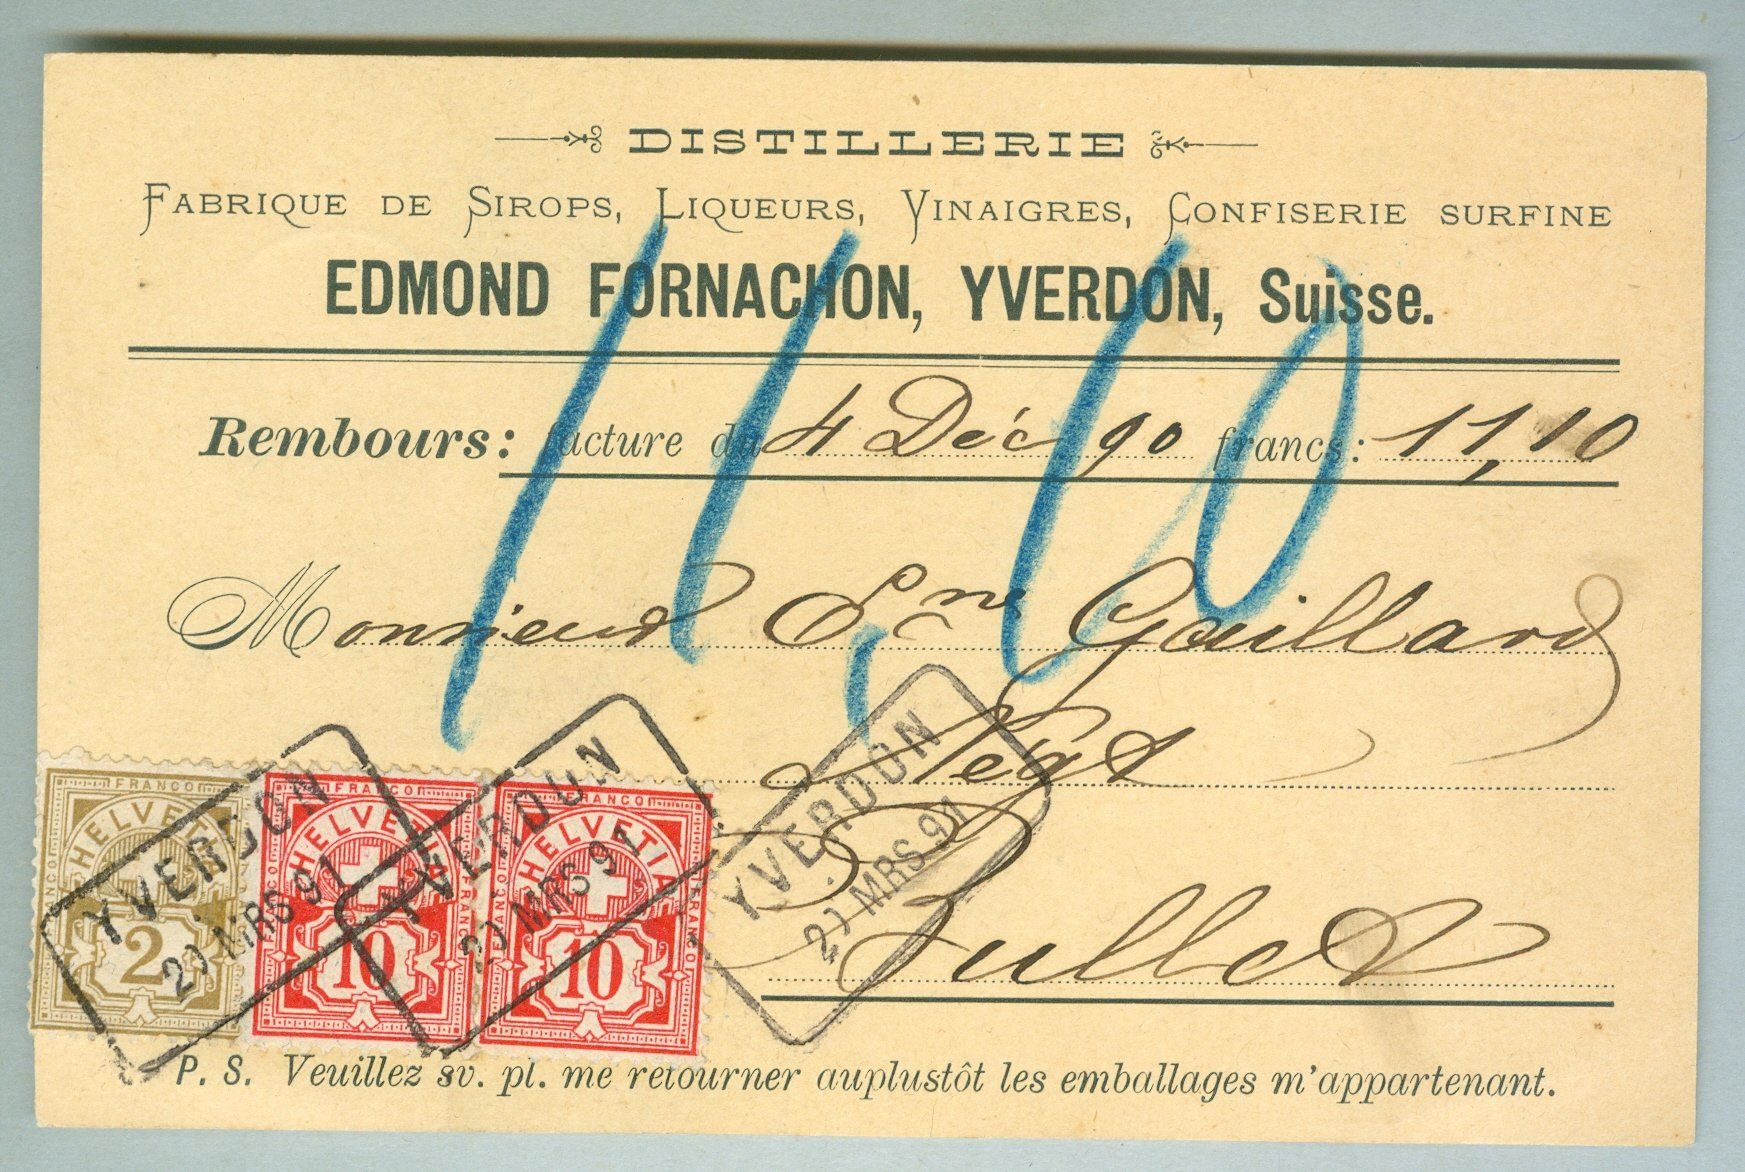 DISTILLERIE
FABRIQUE DE SIROPS, LIQUEURS, VINAIGRES, CONFISERIE SURFINE
EDMOND FORNACHON, YVERDON, Suisse.
11,10
Rembours: facture du 4 Déc 90 francs: 11,10
Monsieur Gaillard
Négt
Bullet
YVERDON
MRS 91
YVERDON
MRS 91
YVERDON
MRS 91
FRANCO
HELVETIA
2
FRANCO
HELVETIA
10
FRANCO
HELVETIA
10
P. S. Veuillez sv. pl. me retourner auplustôt les emballages m'appartenant.